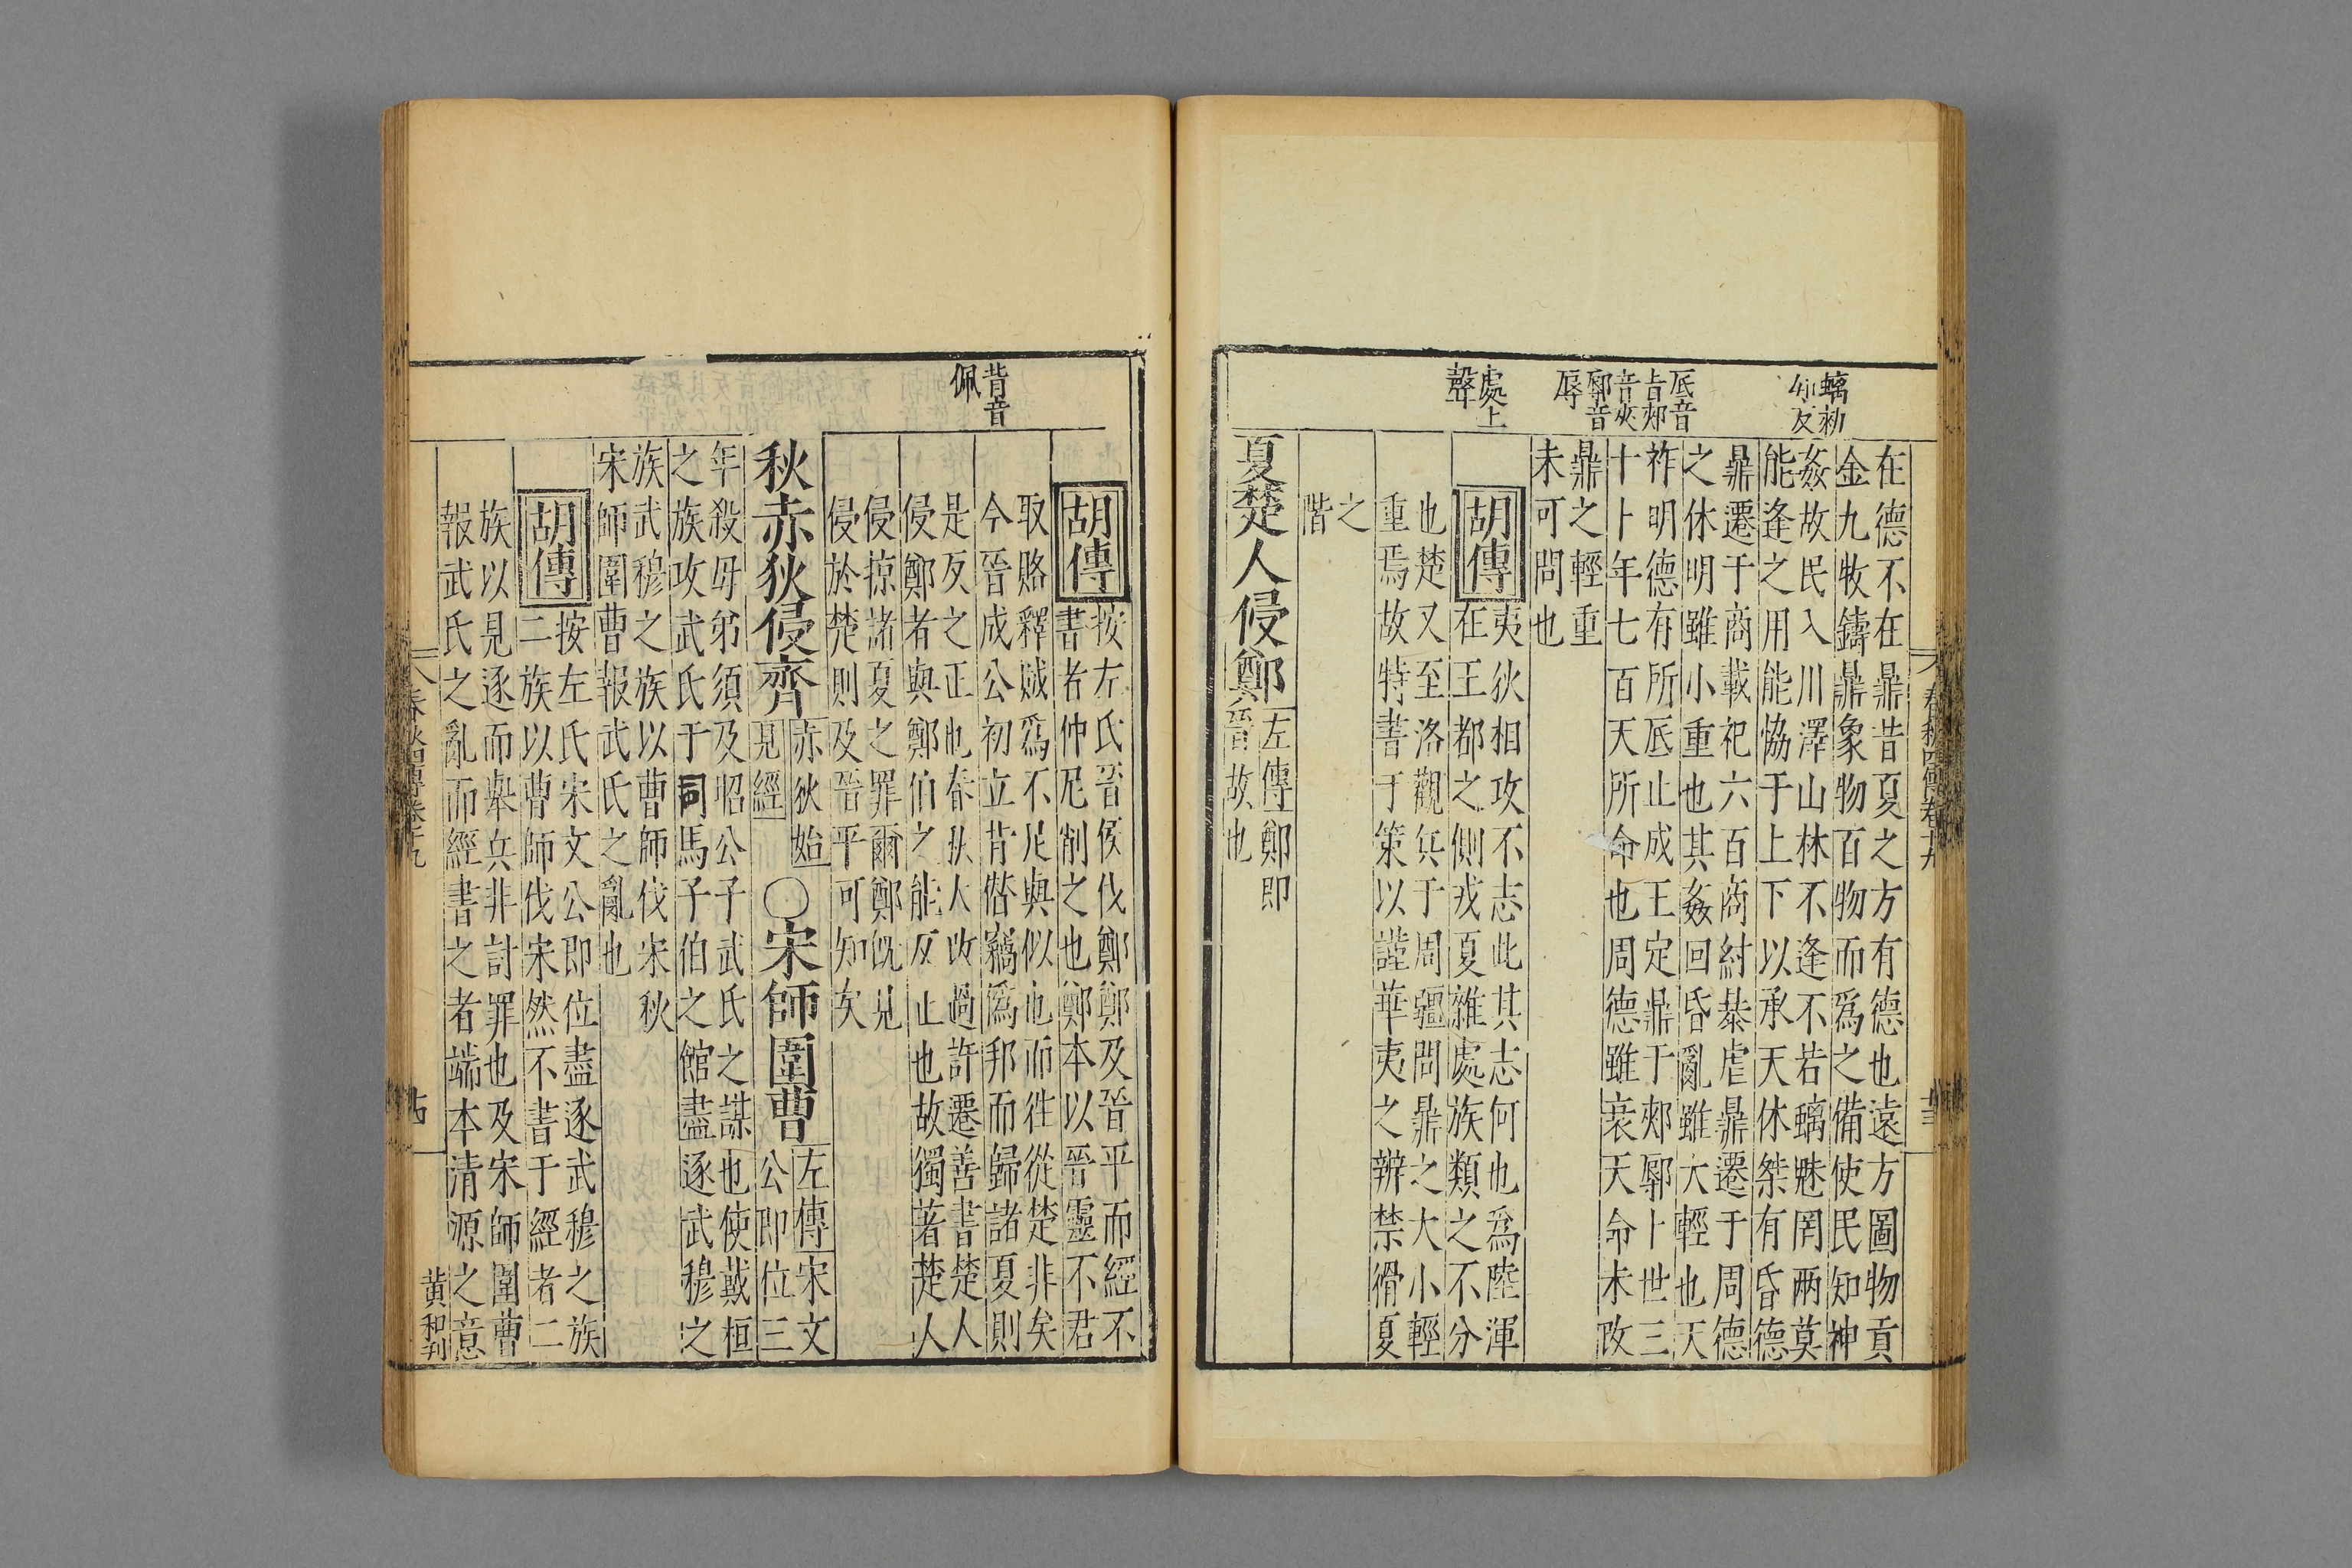 螭勑
知反
在德不在鼎昔夏之方有德也遠方圖物貢
金九牧鑄鼎象物百物而爲之備使民知神
姦故民入川澤山林不逢不若螭魅罔兩莫
能逢之用能恊于上下以承天休桀有昏德
鼎遷于商載祀六百商紂暴虐鼎遷于周德
之休明雖小重也其姦回昏亂雖大輕也天
厎音
旨郟
音夾
鄏音
辱
祚明德有所厎止成王定鼎于郟鄏卜世三
十卜年七百天所命也周德雖衰天命未改
鼎之輕重
未可問也
處上
聲
胡傳
夷狄相攻不志此其志何也爲陸渾
在王都之側戎夏雜處族類之不分
也楚又至洛觀兵于周疆問鼎之大小輕
重焉故特書于策以謹華夷之辨禁猾夏
之
階
夏楚人侵鄭
左傳鄭即
晉故也
春秋四傳卷十九
胡傳
按左氏晉侯伐鄭鄭及晉平而經不
書者仲尼削之也鄭本以晉靈不君
背音
佩
取賂釋賊爲不足與似也而徃從楚非矣
今晉成公初立背僭竊僞邦而歸諸夏則
是反之正也春秋大改過許遷善書楚人
侵鄭者與鄭伯之能反止也故獨著楚人
侵掠諸夏之罪爾鄭旣見
侵於楚則及晉平可知矣
秋赤狄侵齊
赤狄始
見經
○宋師圍曹
左傳宋文
公即位三
年殺毋弟須及昭公子武氏之謀也使戴桓
之族攻武氏于司馬子伯之館盡逐武穆之
族武穆之族以曹師伐宋秋
宋師圍曹報武氏之亂也
胡傳
按左氏宋文公即位盡逐武穆之族
二族以曹師伐宋然不書于經者二
族以見逐而舉兵非討罪也及宋師圍曹
報武氏之亂而經書之者端本清源之意
春秋四傳卷十九
黄和刊